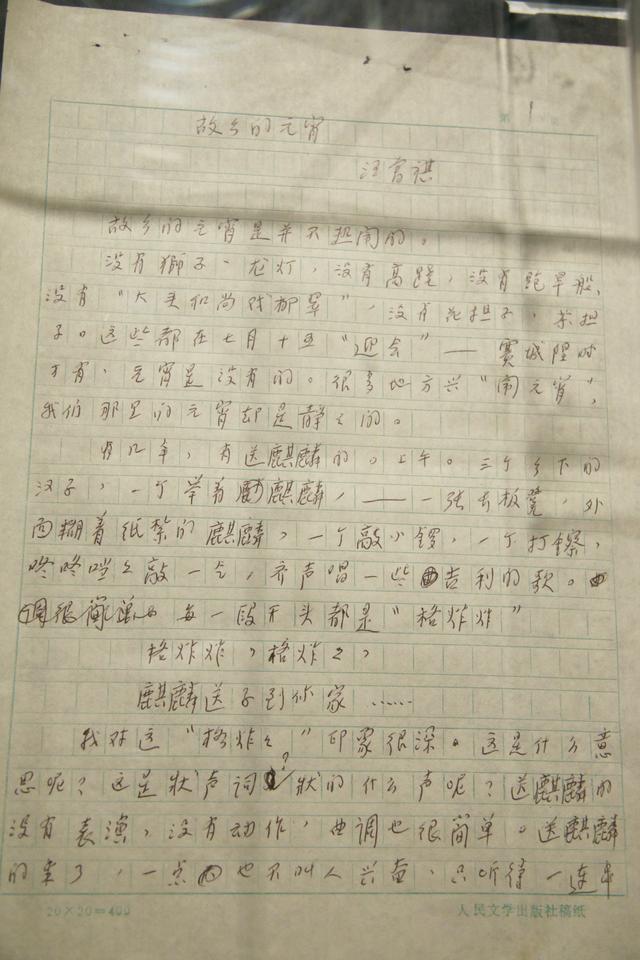 第 1
故乡的元宵
汪曾祺
故乡的元宵是并不热闹的。
没有狮子、龙灯，没有高跷，没有跑旱船，
没有“大头和尚戏柳翠”，没有花担子、茶担
子。这些都在七月十五“迎会”——赛城隍时
才有，元宵是没有的。很多地方兴“闹元宵”，
我们那里的元宵却是静々的。
有几年，有送麒麟的。上午。三个乡下的
汉子，一个举着麒麟，——一张长板凳，外
面糊着纸扎的麒麟，一个敲小锣，一个打镲，
咚咚咣々敲一气，齐声唱一些吉利的歌。
调很简单。每一段开头都是“格炸炸”
格炸炸，格炸々，
麒麟送子到你家……
我对这“格炸々”印象很深。这是什么意
思呢？这是状声词？状的什么声呢？送麒麟的
没有表演，没有动作，曲调也很简单。送麒麟
的来了，一点也不叫人兴奋，只听得一连串
20×20=400
人民文学出版社稿纸